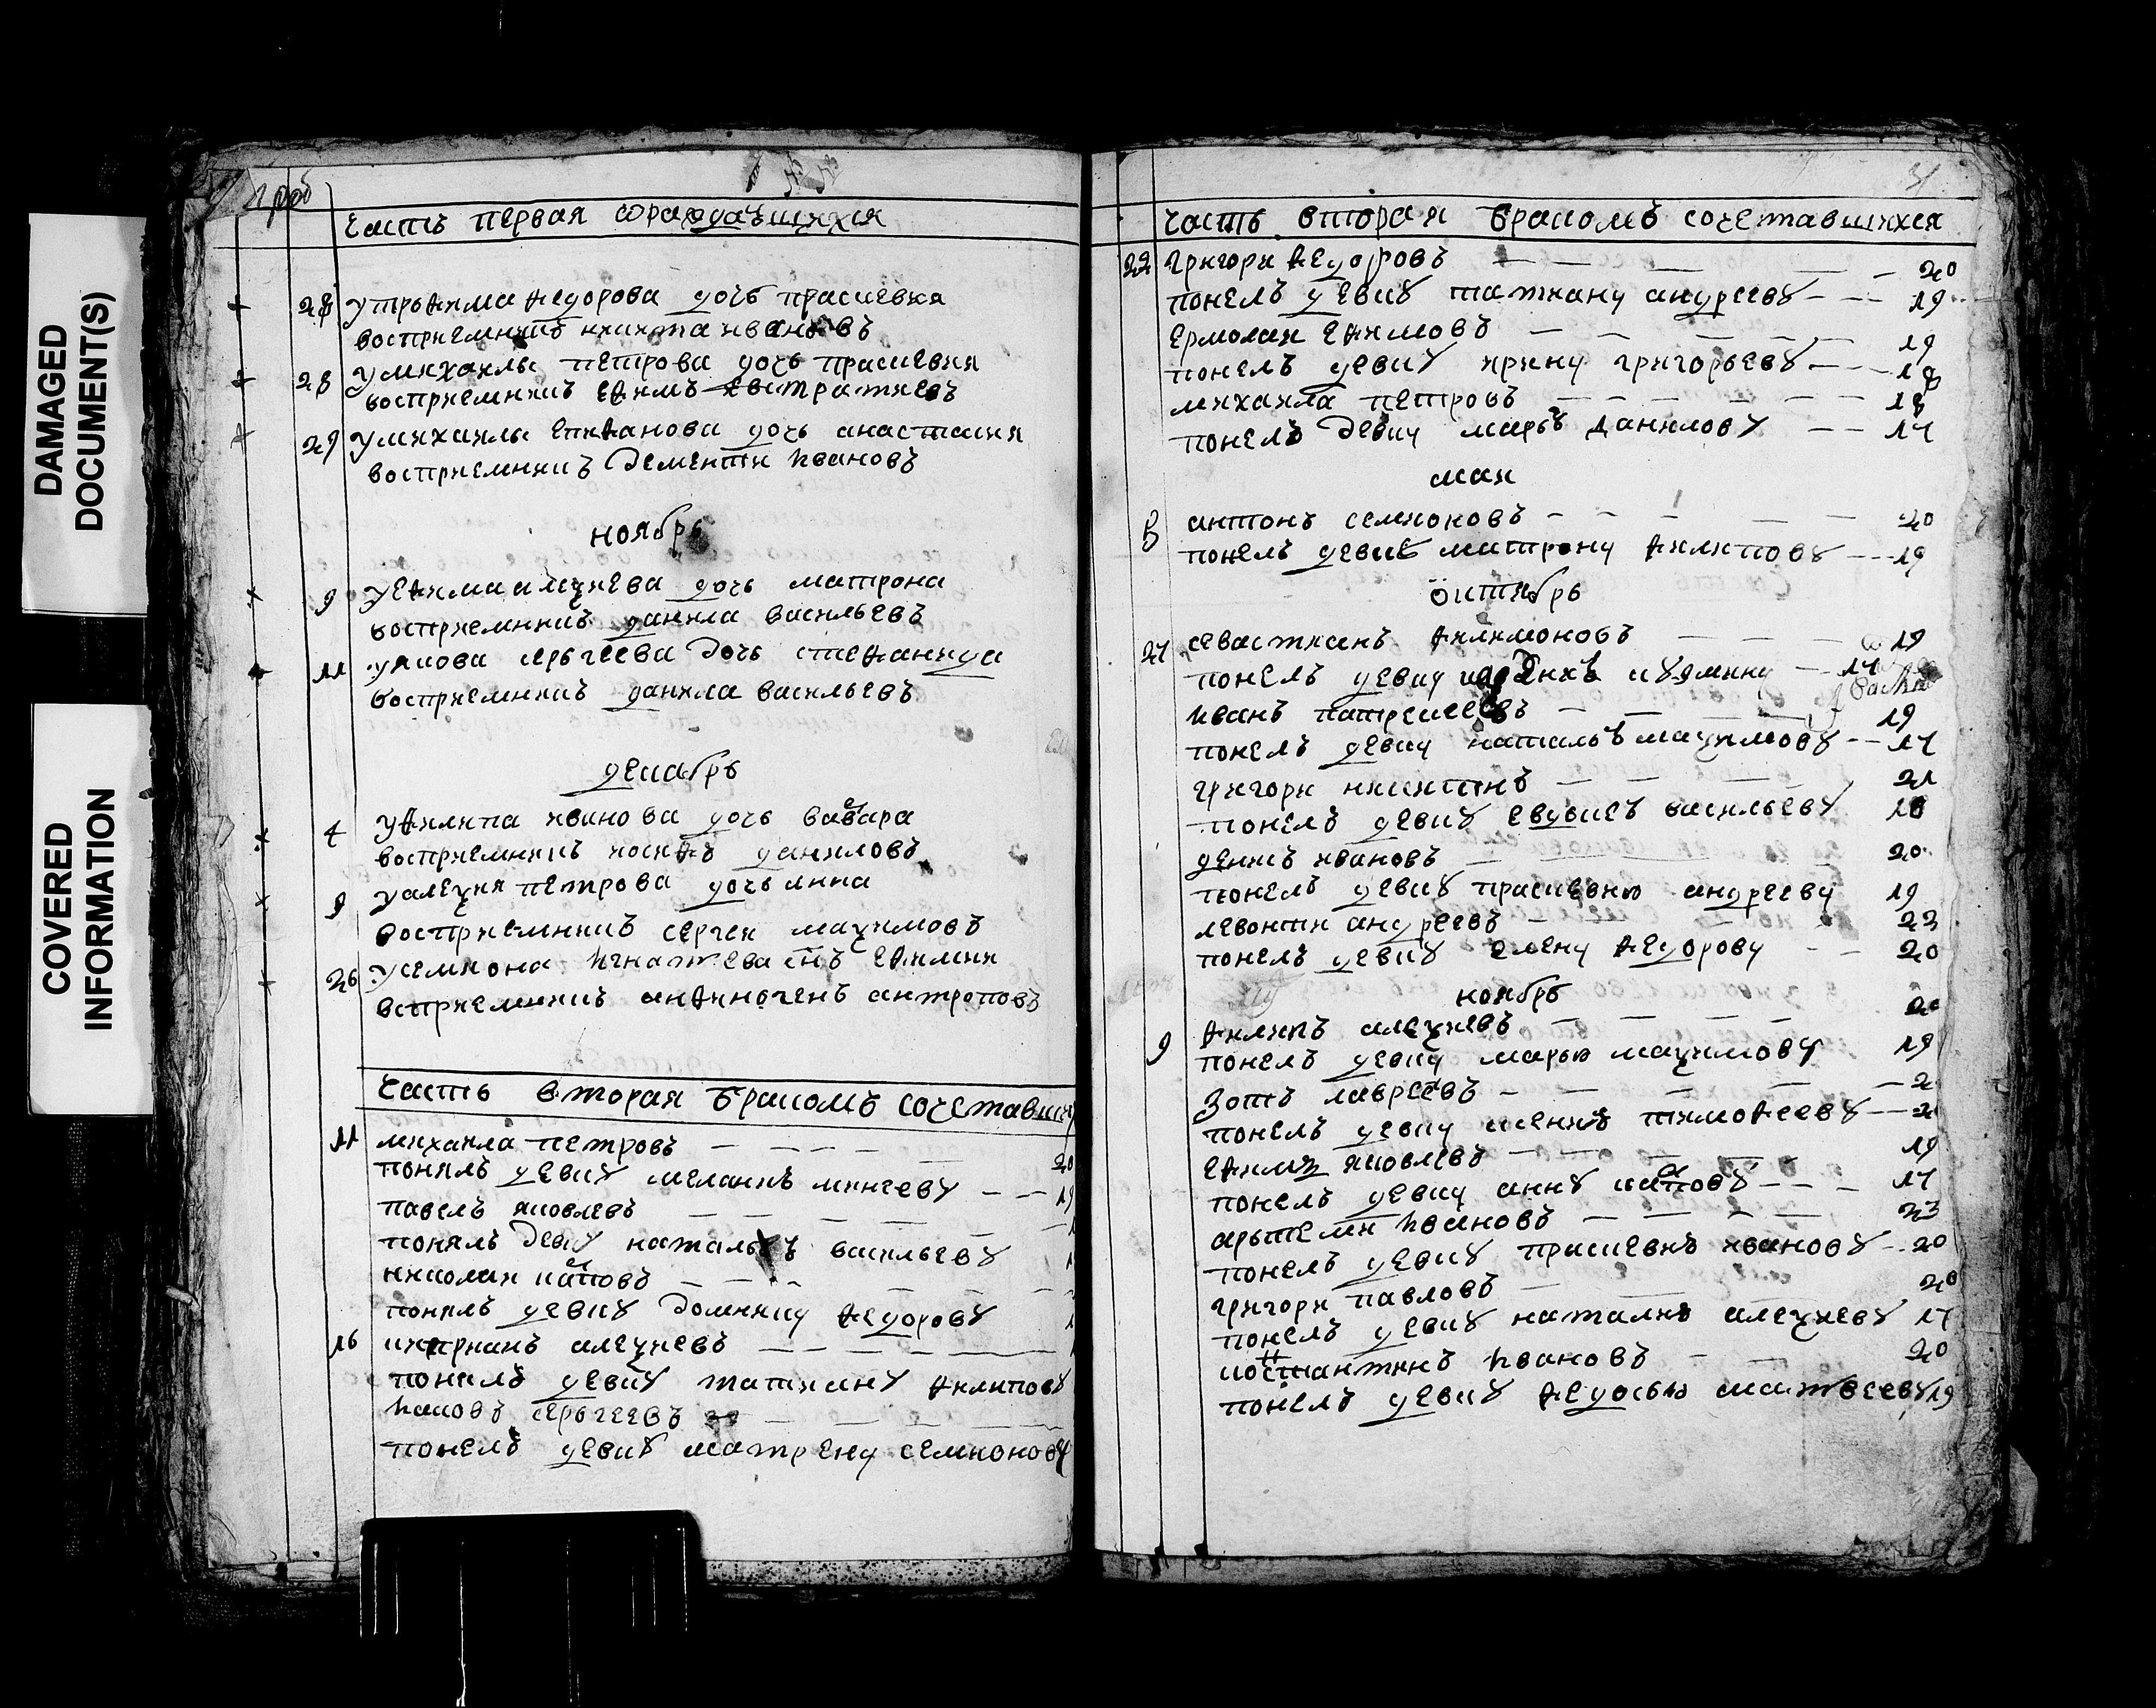 DAMAGED
DOCUMENT(S)
COVERED
INFORMATION
часть первая ораждашихся
28 утрофима федорова дочь прасковея
восприемникъ никита ивановъ
28 умихаилы петрова дочь прасковия
восприемникъ ефимъ евтратиевъ
29 умихаилы епифанова дочь анастасия
восприемникъ дементи ивановъ
ноябрь
9 уефима алеѯиева дочь матрона
восприемникъ данила васильевъ
11 уякова серьгеева дочь стефанида
восприемникъ данила васильевъ
декабрь
4 уфилипа иванова дочь вавара
восприемникъ иосифъ даниловъ
9 уалеѯия петрова дочь анна
восприемникъ сергеи маѯимовъ
26 усемиона игнатева снъ ефимия
всприемникъ анфиногенъ антроповъ
часть вторая бракомъ сочетавших
11 михаила петровъ 20
понялъ девку меланиѣ минеевУ 19
павелъ яковлевъ
понялъ девкУ наталью васильевУ
николаи каповъ
понялъ девкУ домнику федоровУ
16 киприанъ алеѯиевъ
понялъ девкУ татиянУ филиповУ
иаковъ серьгеевъ
понелъ девкУ матрену семионову
31
часть вторая бракомъ сочетавшихся
22 григори федоровъ 20
понелъ девкУ татиану андреевУ 19
ермолаи ефимовъ 19
понелъ девкУ ирину григорьевУ 18
михаила петровъ 18
понелъ девку марьѣ даниловУ 17
маи
5 антонъ семионовъ 20
понелъ девкУ матрону филиповУ 19
октябрь
27 севастианъ филимоновъ 19
понелъ девку кУзмину 17
иванъ патрекеевъ 19
понелъ девку натальѣ маѯимовУ 17
григори никитинъ 21
понелъ девкУ евдокеѣ васильевУ 18
денисъ ивановъ 20
понелъ девкУ прасковью андрееву 19
левонти андреевъ 22
понелъ девкУ елену федорову 20
ноябрь
филипъ алеѯиевъ 20
9 понелъ девку марью маѯимовУ 19
зотъ лавреевъ 2
понелъ девку ксению тимофеевУ 2
ефимъ яковлевъ 19
понелъ девку аннУ каповУ 17
арьтеми ивановъ 23
понелъ девкУ прасковью ивановУ 20
григори павловъ 20
понелъ девкУ наталию алеѯиевУ 17
костантинъ ивановъ 20
понелъ девкУ федосью матвеевУ 19